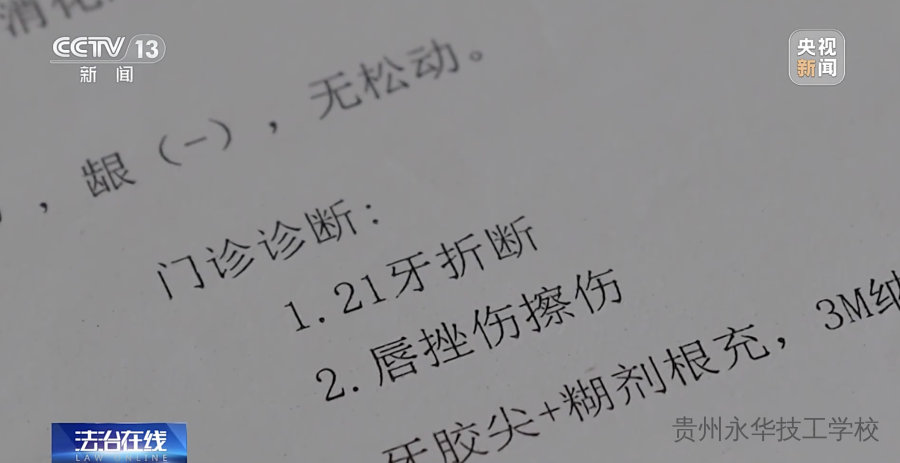 消化
CCTV 13
新闻
央视
新闻
，龈（-），无松动。
门诊诊断：
1.21牙折断
2.唇挫伤擦伤
牙胶尖+糊剂根充，3M纳
法治在线
LAW ONLINE
贵州永华技工学校